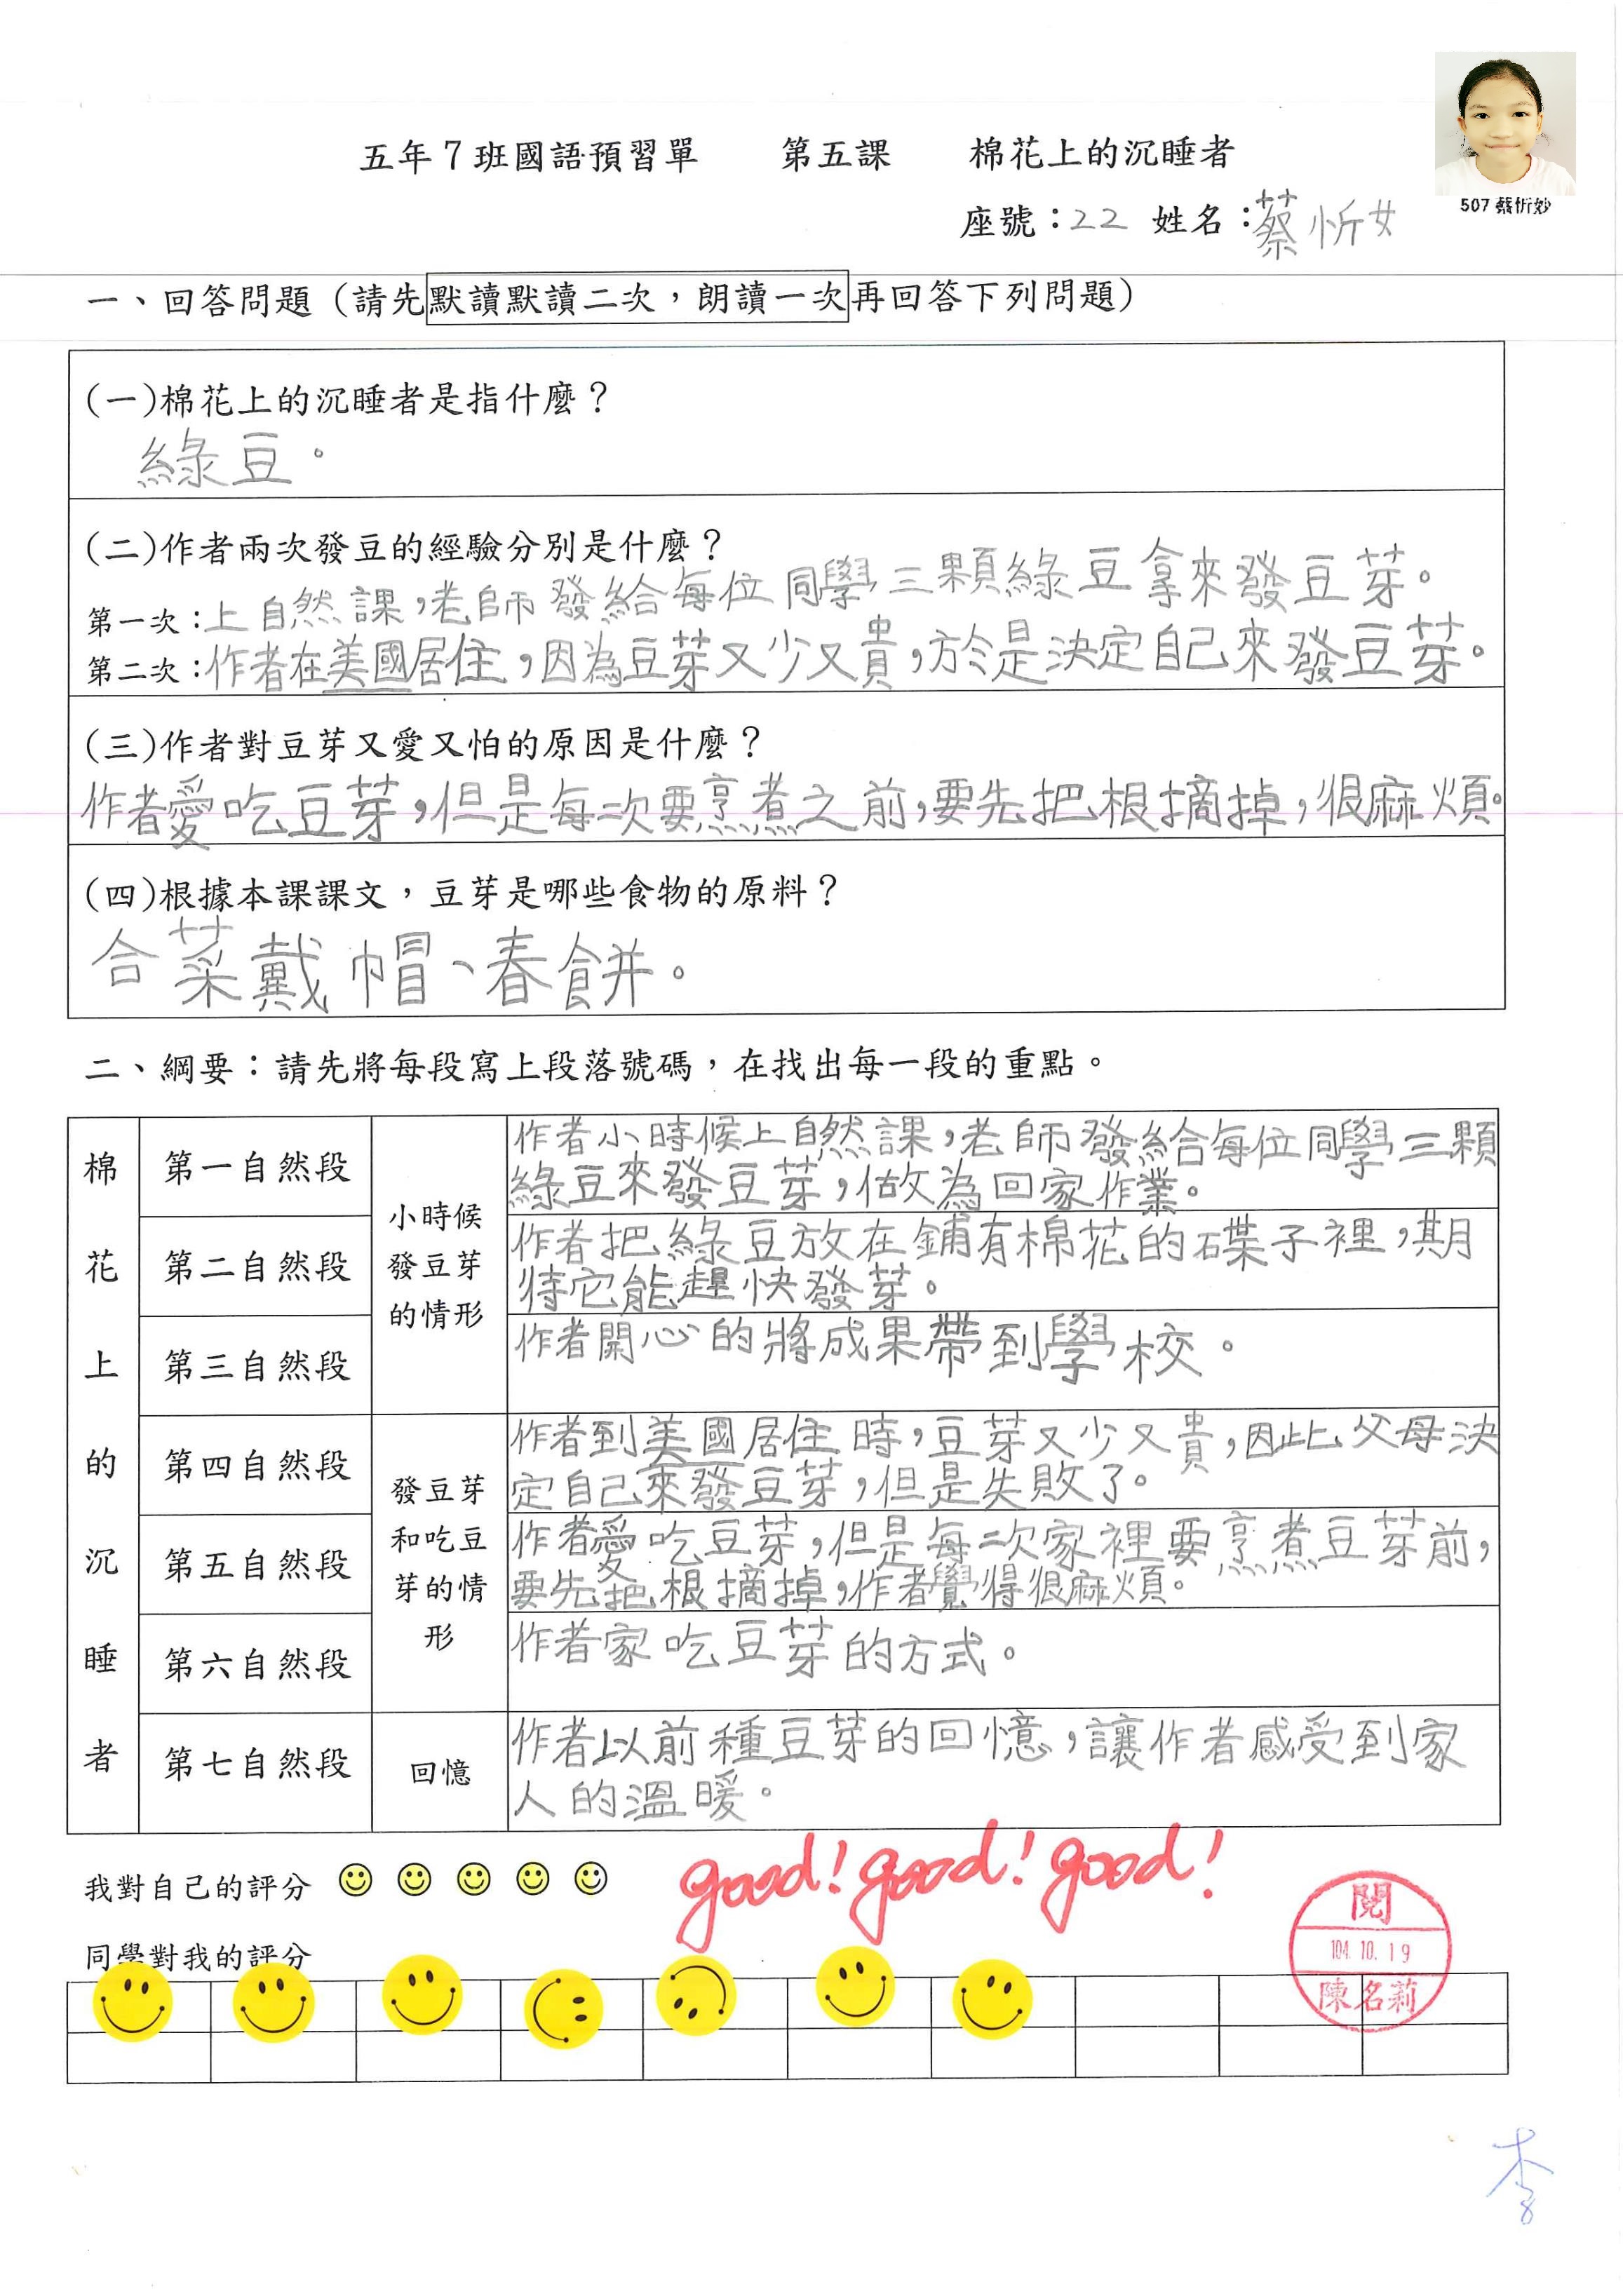 五年7班國語預習單 第五課 棉花上的沉睡者
座號：22 姓名：蔡忻女
507 蔡忻妙
一、回答問題（請先默讀默讀二次，朗讀一次再回答下列問題）
(一)棉花上的沉睡者是指什麼？
綠豆。
(二)作者兩次發豆的經驗分別是什麼？
第一次：上自然課，老師發給每位同學三顆綠豆拿來發豆芽。
第二次：作者在美國居住，因為豆芽又少又貴，於是決定自己來發豆芽。
(三)作者對豆芽又愛又怕的原因是什麼？
作者愛吃豆芽，但是每次要烹煮之前，要先把根摘掉，很麻煩。
(四)根據本課課文，豆芽是哪些食物的原料？
合菜戴帽、春餅。
二、綱要：請先將每段寫上段落號碼，在找出每一段的重點。
棉花上的沉睡者
小時候
發豆芽
的情形
第一自然段
作者小時候上自然課，老師發給每位同學三顆
綠豆來發豆芽，做為回家作業。
第二自然段
作者把綠豆放在鋪有棉花的碟子裡，期
待它能趕快發芽。
第三自然段
作者開心的將成果帶到學校。
發豆芽
和吃豆
芽的情
形
第四自然段
作者到美國居住時，豆芽又少又貴，因此父母決
定自己來發豆芽，但是失敗了。
第五自然段
作者愛吃豆芽，但是每次家裡要烹煮豆芽前，
要先把根摘掉，作者覺得很麻煩。
第六自然段
作者家吃豆芽的方式。
第七自然段
回憶
作者以前種豆芽的回憶，讓作者感受到家
人的溫暖。
我對自己的評分
good! good! good!
同學對我的評分
閱
104.10.19
陳名莉